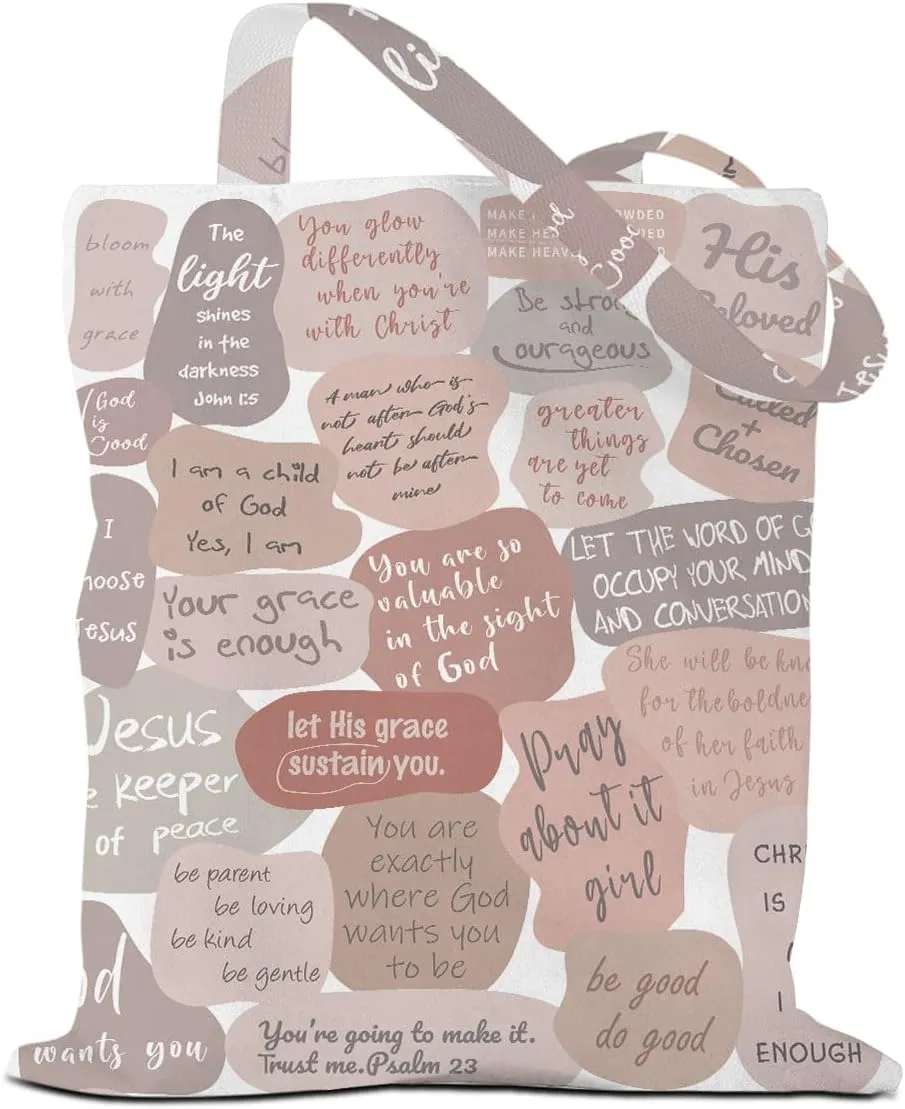 bloom
with
grace
The
light
shines
in the
darkness
John 1:5
You glow
differently
when you're
with Christ
MAKE
MAKE
MAKE
Be
and
Courageous
His
God
is
Good
A man who is
not after God's
heart should
not be after
mine
greater
things
are yet
to come
Called
+
Chosen
I am a child
of God
Yes, I am
I
Your grace
is enough
You are so
valuable
in the sight
of God
LET THE WORD OF
OCCUPY YOUR MIND
AND CONVERSATION
She will be
for the
of her faith
in Jesus
Jesus
keeper
of peace
let His grace
sustain you.
Pray
about it
girl
You are
exactly
where God
wants you
to be
be parent
be loving
be kind
be gentle
be good
do good
IS
I
ENOUGH
wants you
You're going to make it.
Trust me.Psalm 23